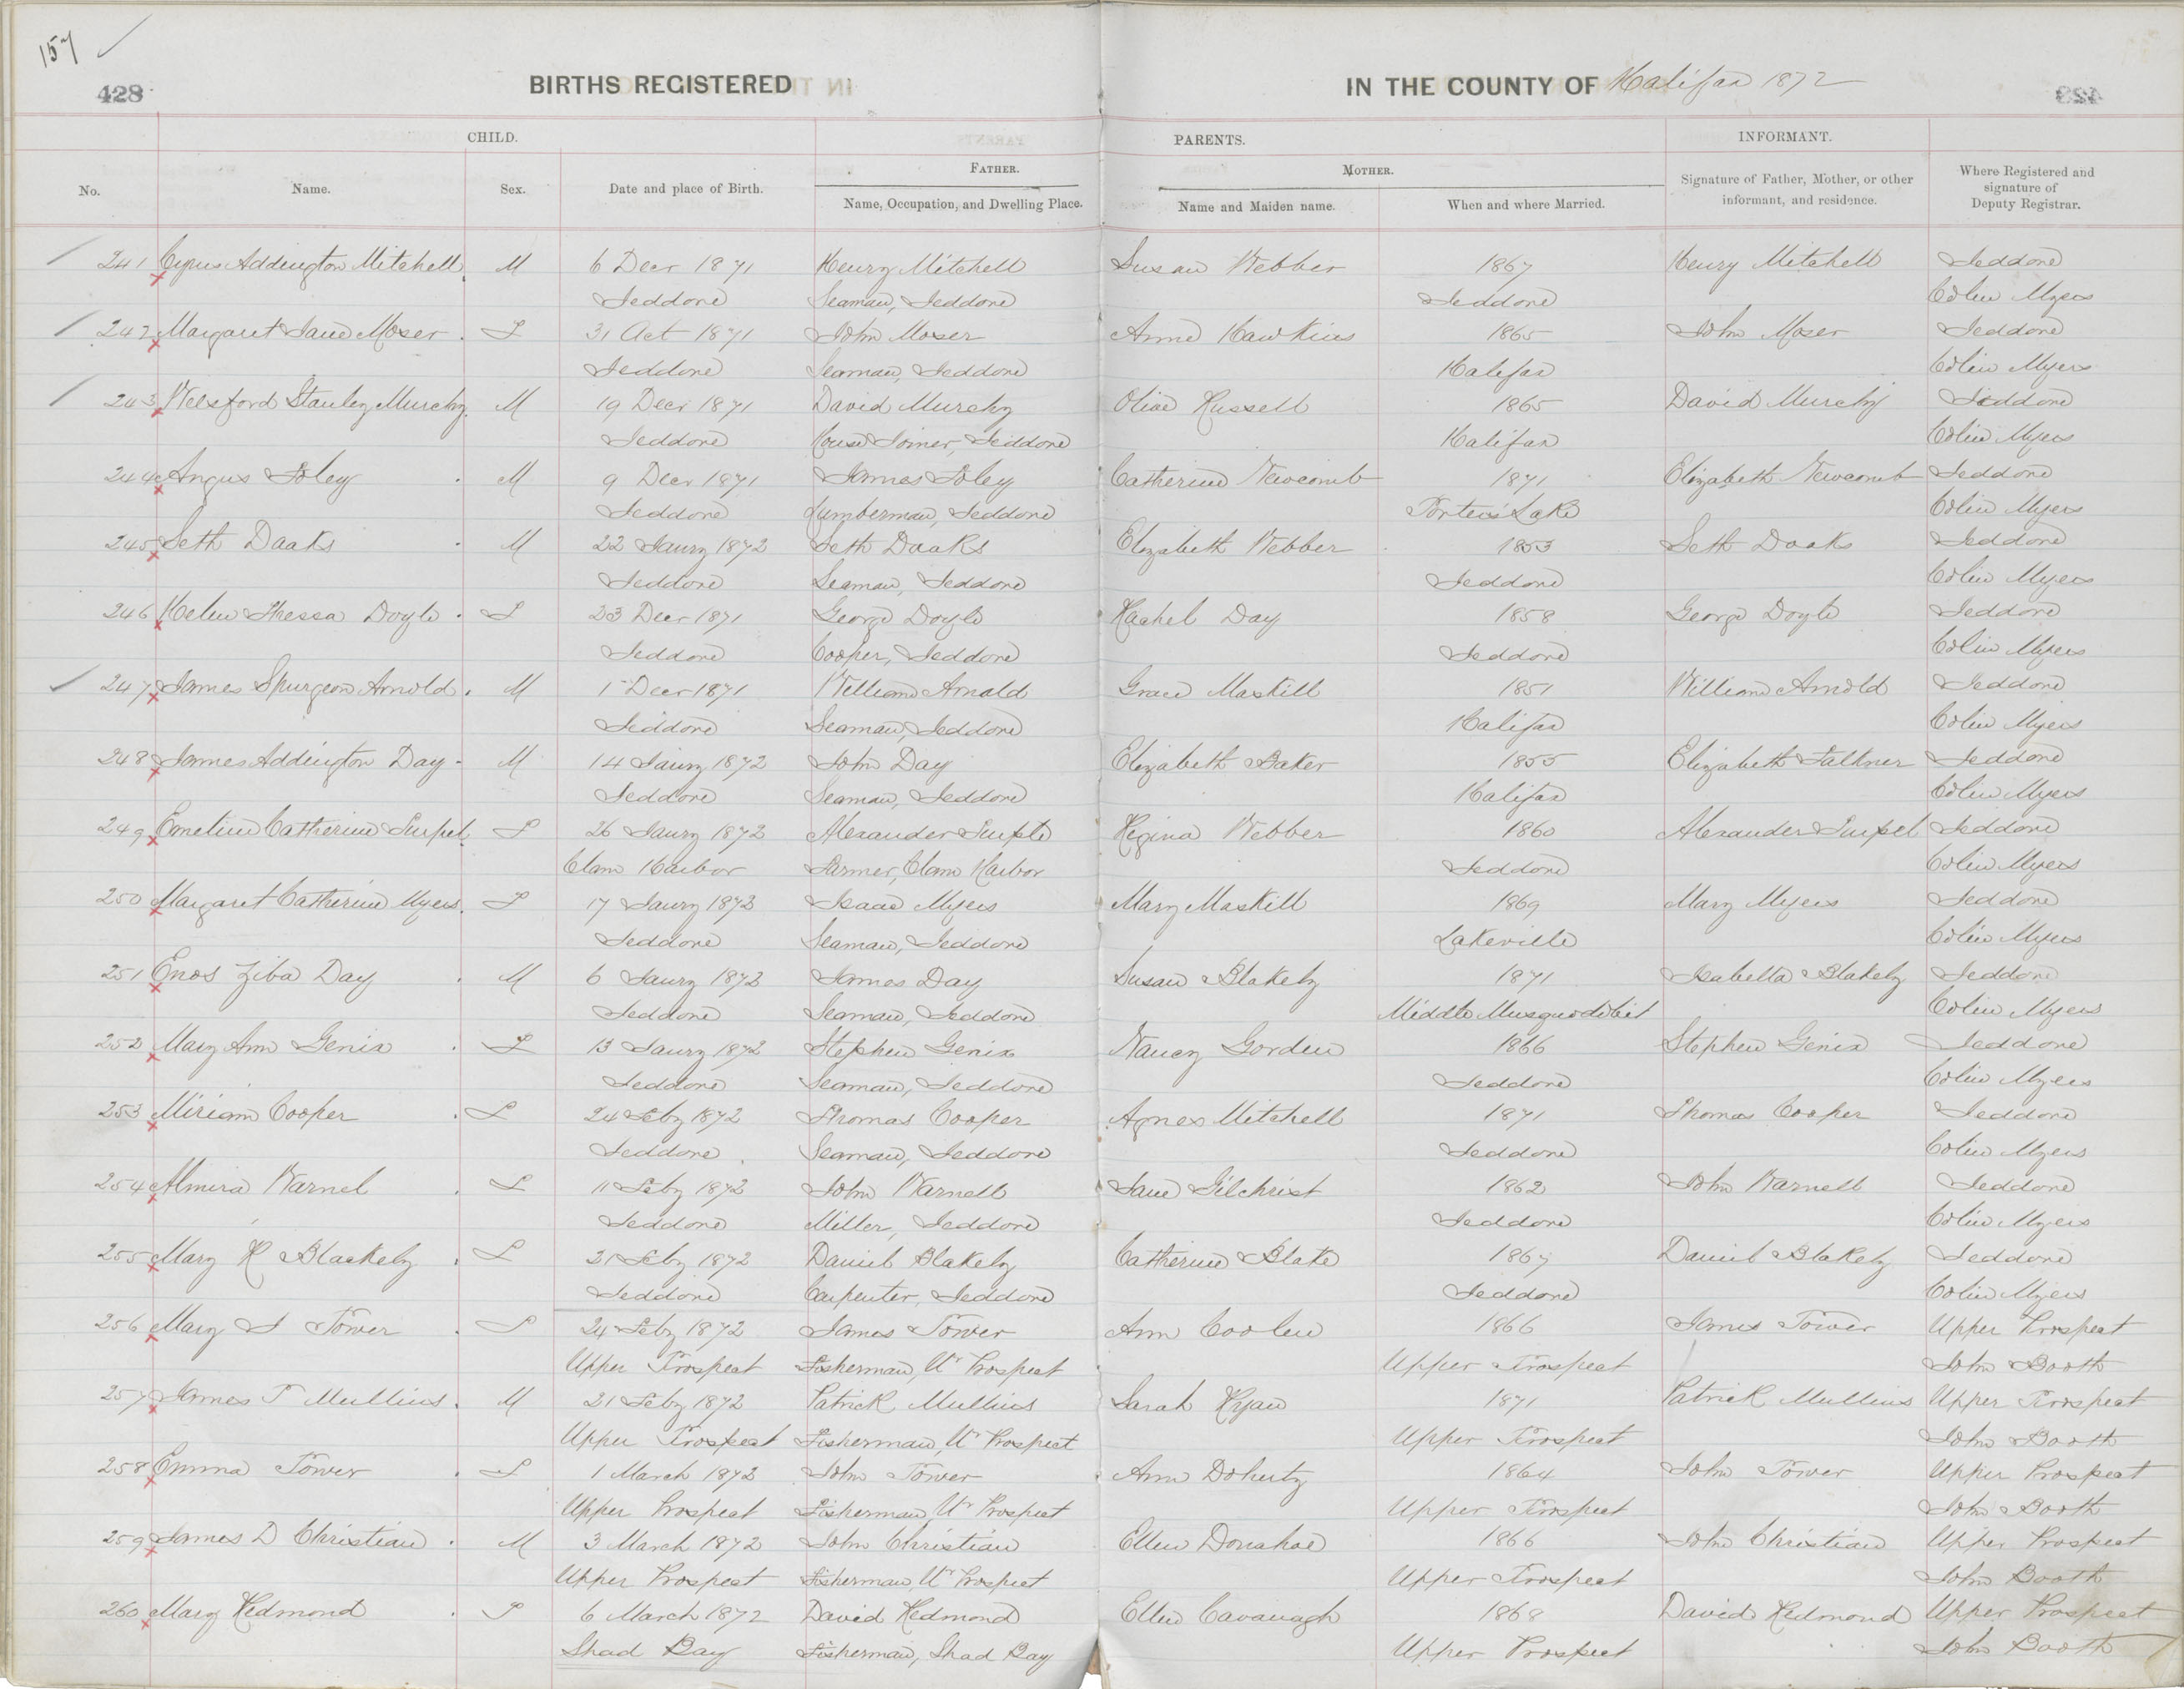 157
428
BIRTHS REGISTERED
IN THE COUNTY OF Halifax 1872
CHILD. PARENTS. INFORMANT.
FATHER. MOTHER.
No. Name. Sex. Date and place of Birth. Name, Occupation, and Dwelling Place. Name and Maiden name. When and where Married. Signature of Father, Mother, or other informant, and residence. Where Registered and signature of Deputy Registrar.
241 Cyrus Addington Mitchell M 6 Decr 1871 Henry Mitchell Susan Webber 1867 Henry Mitchell Jeddore
Jeddore Seaman, Jeddore Jeddore Colin Myers
242 Margaret Jane Moser F 31 Oct 1871 John Moser Anne Hawkins 1865 John Moser Jeddore
Jeddore Seaman, Jeddore Halifax Colin Myers
243 Welsford Stanley Murchy M 19 Decr 1871 David Murchy Olive Russell 1865 David Murchy Jeddore
Jeddore House Joiner, Jeddore Halifax Colin Myers
244 Angus Foley M 9 Decr 1871 James Foley Catherine Newcomb 1871 Elizabeth Newcomb Jeddore
Jeddore Lumberman, Jeddore Porter's Lake Colin Myers
245 Seth Daaks M 22 Jany 1872 Seth Daaks Elizabeth Webber 1853 Seth Daaks Jeddore
Jeddore Seaman, Jeddore Jeddore Colin Myers
246 Helen Thressa Doyle F 23 Decr 1871 George Doyle Rachel Day 1858 George Doyle Jeddore
Jeddore Cooper, Jeddore Jeddore Colin Myers
247 James Spurgeon Arnold M 1 Decr 1871 William Arnold Grace Maskill 1851 William Arnold Jeddore
Jeddore Seaman, Jeddore Halifax Colin Myers
248 James Addington Day M 14 Jany 1872 John Day Elizabeth Baker 1855 Elizabeth Falkner Jeddore
Jeddore Seaman, Jeddore Halifax Colin Myers
249 Emeline Catherine F 26 Jany 1872 Alexander Regina Webber 1860 Alexander Jeddore
Clam Harbor Farmer, Clam Harbor Jeddore Colin Myers
250 Margaret Catherine Myers F 17 Jany 1872 Isaac Myers Mary Maskill 1869 Mary Myers Jeddore
Jeddore Seaman, Jeddore Lakeville Colin Myers
251 Enos Ziba Day M 6 Jany 1872 James Day Susan Blakely 1871 Isabella Blakely Jeddore
Jeddore Seaman, Jeddore Middle Musquodobit Colin Myers
252 Mary Ann Genix F 13 Jany 1872 Stephen Genix Nancy Gorden 1866 Stephen Genix Jeddore
Jeddore Seaman, Jeddore Jeddore Colin Myers
253 Miriam Cooper F 24 Feby 1872 Thomas Cooper Agnes Mitchell 1871 Thomas Cooper Jeddore
Jeddore Seaman, Jeddore Jeddore Colin Myers
254 Almira Warnel F 11 Feby 1872 John Warnell Jane Gilchrist 1862 John Warnell Jeddore
Jeddore Miller, Jeddore Jeddore Colin Myers
255 Mary H Blackely F 21 Feby 1872 Daniel Blakely Catherine Blake 1867 Daniel Blakely Jeddore
Jeddore Carpenter, Jeddore Jeddore Colin Myers
256 Mary J Tower F 24 Feby 1872 James Tower Ann Coolen 1866 James Tower Upper Prospect
Upper Prospect Fisherman, Ur Prospect Upper Prospect John Booth
257 James P Mullins M 21 Feby 1872 Patrick Mullins Sarah Ryan 1871 Patrick Mullins Upper Prospect
Upper Prospect Fisherman, Ur Prospect Upper Prospect John Booth
258 Emma Tower F 1 March 1872 John Tower Ann Doherty 1864 John Tower Upper Prospect
Upper Prospect Fisherman, Ur Prospect Upper Prospect John Booth
259 James D Christian M 3 March 1872 John Christian Ellen Donahoe 1866 John Christian Upper Prospect
Upper Prospect Fisherman, Ur Prospect Upper Prospect John Booth
260 Mary Redmond F 6 March 1872 David Redmond Ellen Cavanagh 1868 David Redmond Upper Prospect
Shad Bay Fisherman, Shad Bay Upper Prospect John Booth